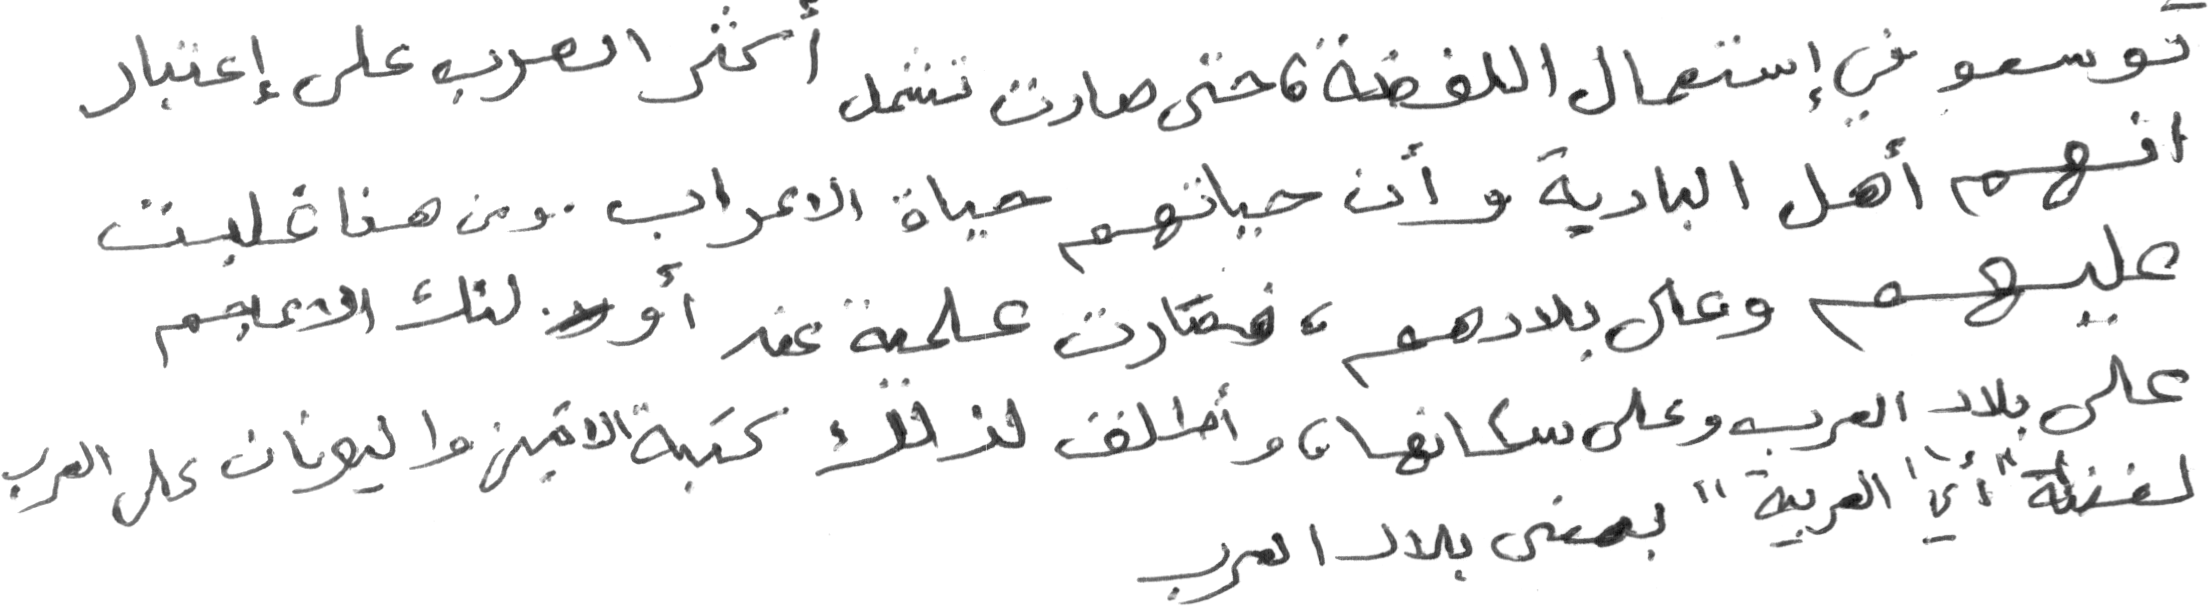 توسعو في إستعمال اللفضة، حتى صارت تشمل أكثر العرب على إعتبار
انهم أهل البادية وأن حياتهم حياة الاعراب. ومن هنا غلبت
عليهم وعلى بلادهم، فصارت علمية عند أولئك الاعاجم
على بلاد العرب وعلى سكانها، وأطلق لذلك كتبة الاتين واليونان على العرب
لفضة "أي العربية" بمعنى بلاد العرب